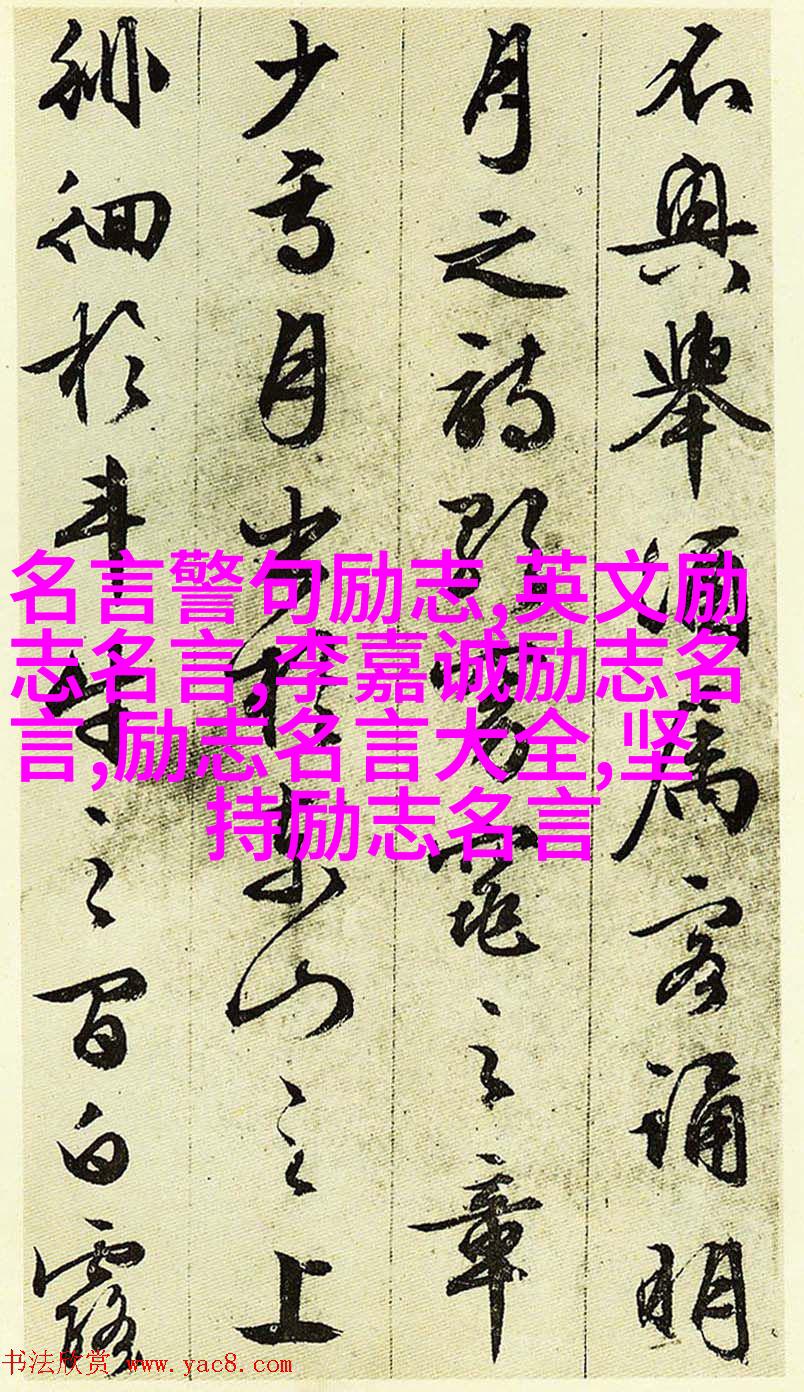 不興舉酒屬客誦明
月之詩歌窈窕之章
少焉月出於東山之上
徘徊於斗牛之間白露
名言警句励志,英文励
志名言,李嘉诚励志名
言,励志名言大全,坚
持励志名言
书法欣赏 www.yac8.com